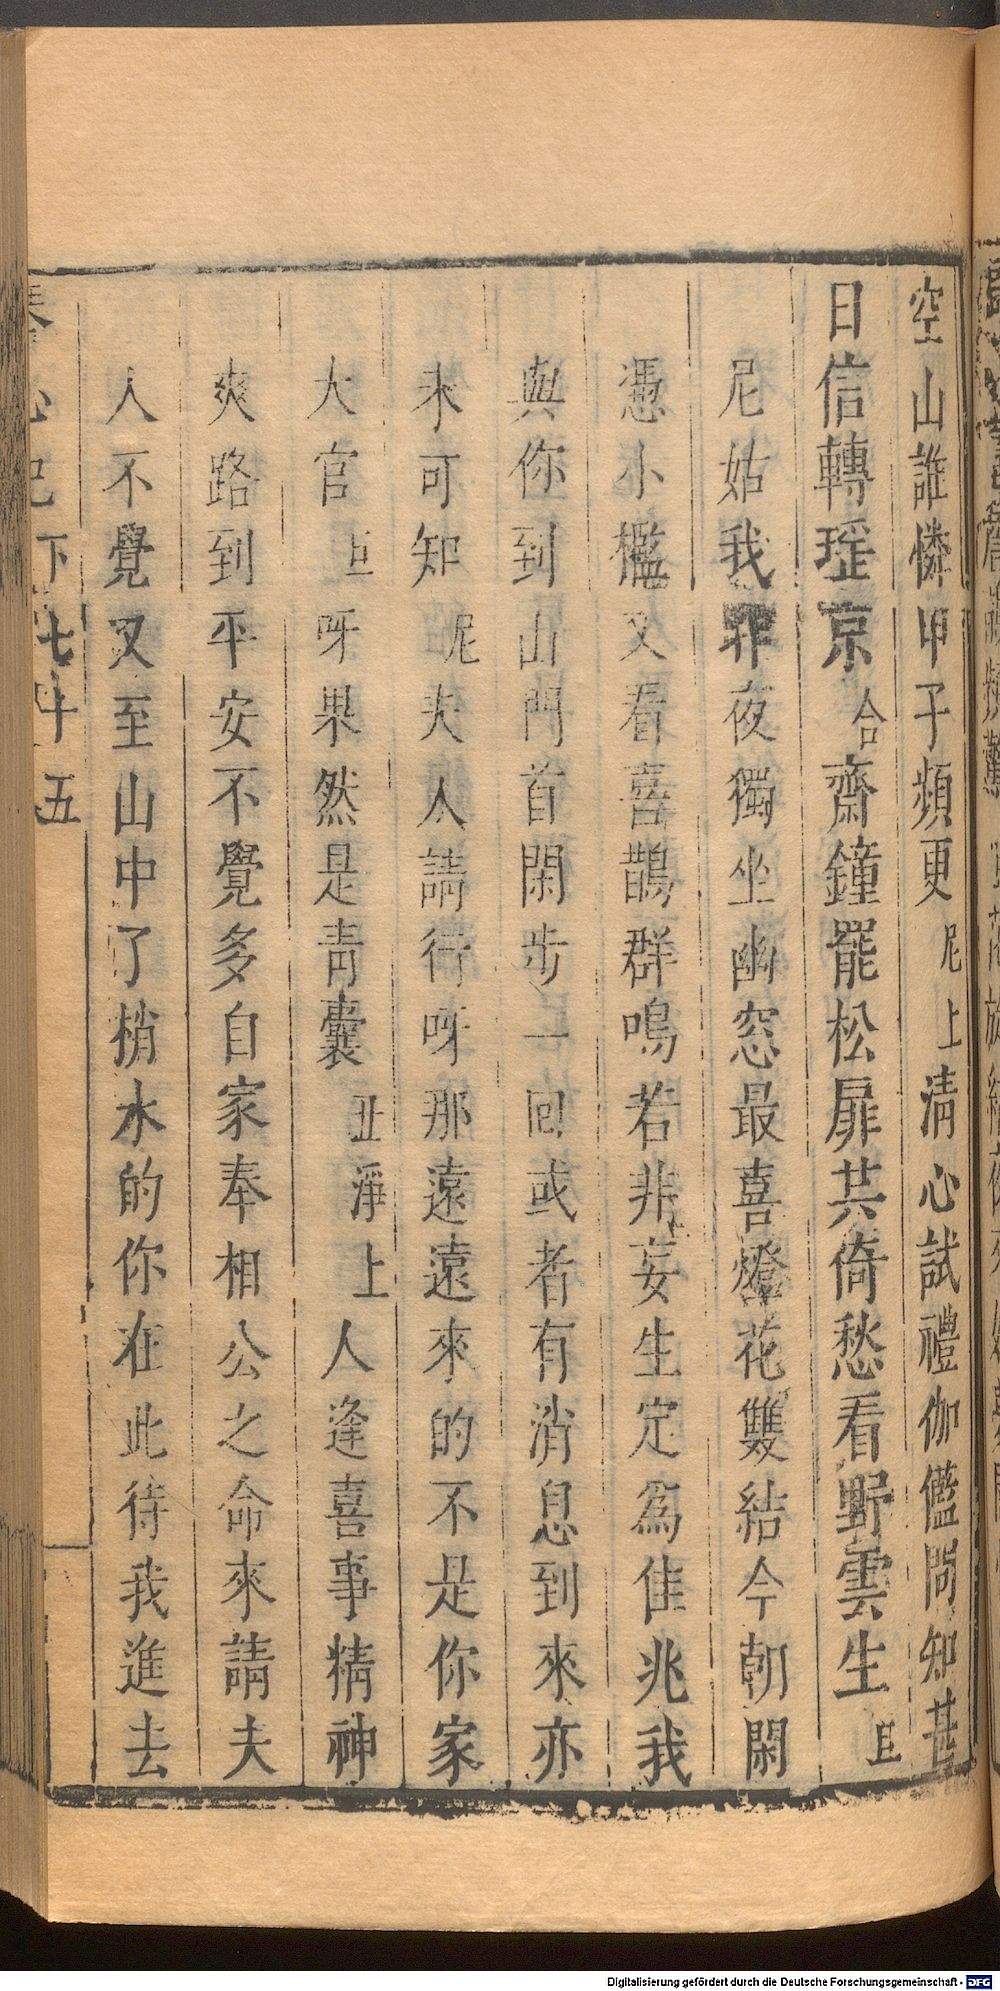 空山誰憐甲子頻更尼上清心試禮伽儖問知甚
日信轉瑶京合齋鐘罷松扉共倚愁看野雲生旦
尼姑我昨夜獨坐幽窓最喜燈花雙結今朝閑
憑小檻又看喜鵲群鳴若非妄生定爲佳兆我
與你到山門首閑步一回或者有消息到來亦
未可知尼夫人請行呀那遠遠來的不是你家
大官旦呀果然是青囊丑淨上人逢喜事精神
爽路到平安不覺多自家奉相公之命來請夫
人不覺又至山中了梢水的你在此待我進去
記下 七 五
Digitalisierung gefördert durch die Deutsche Forschungsgemeinschaft - DFG